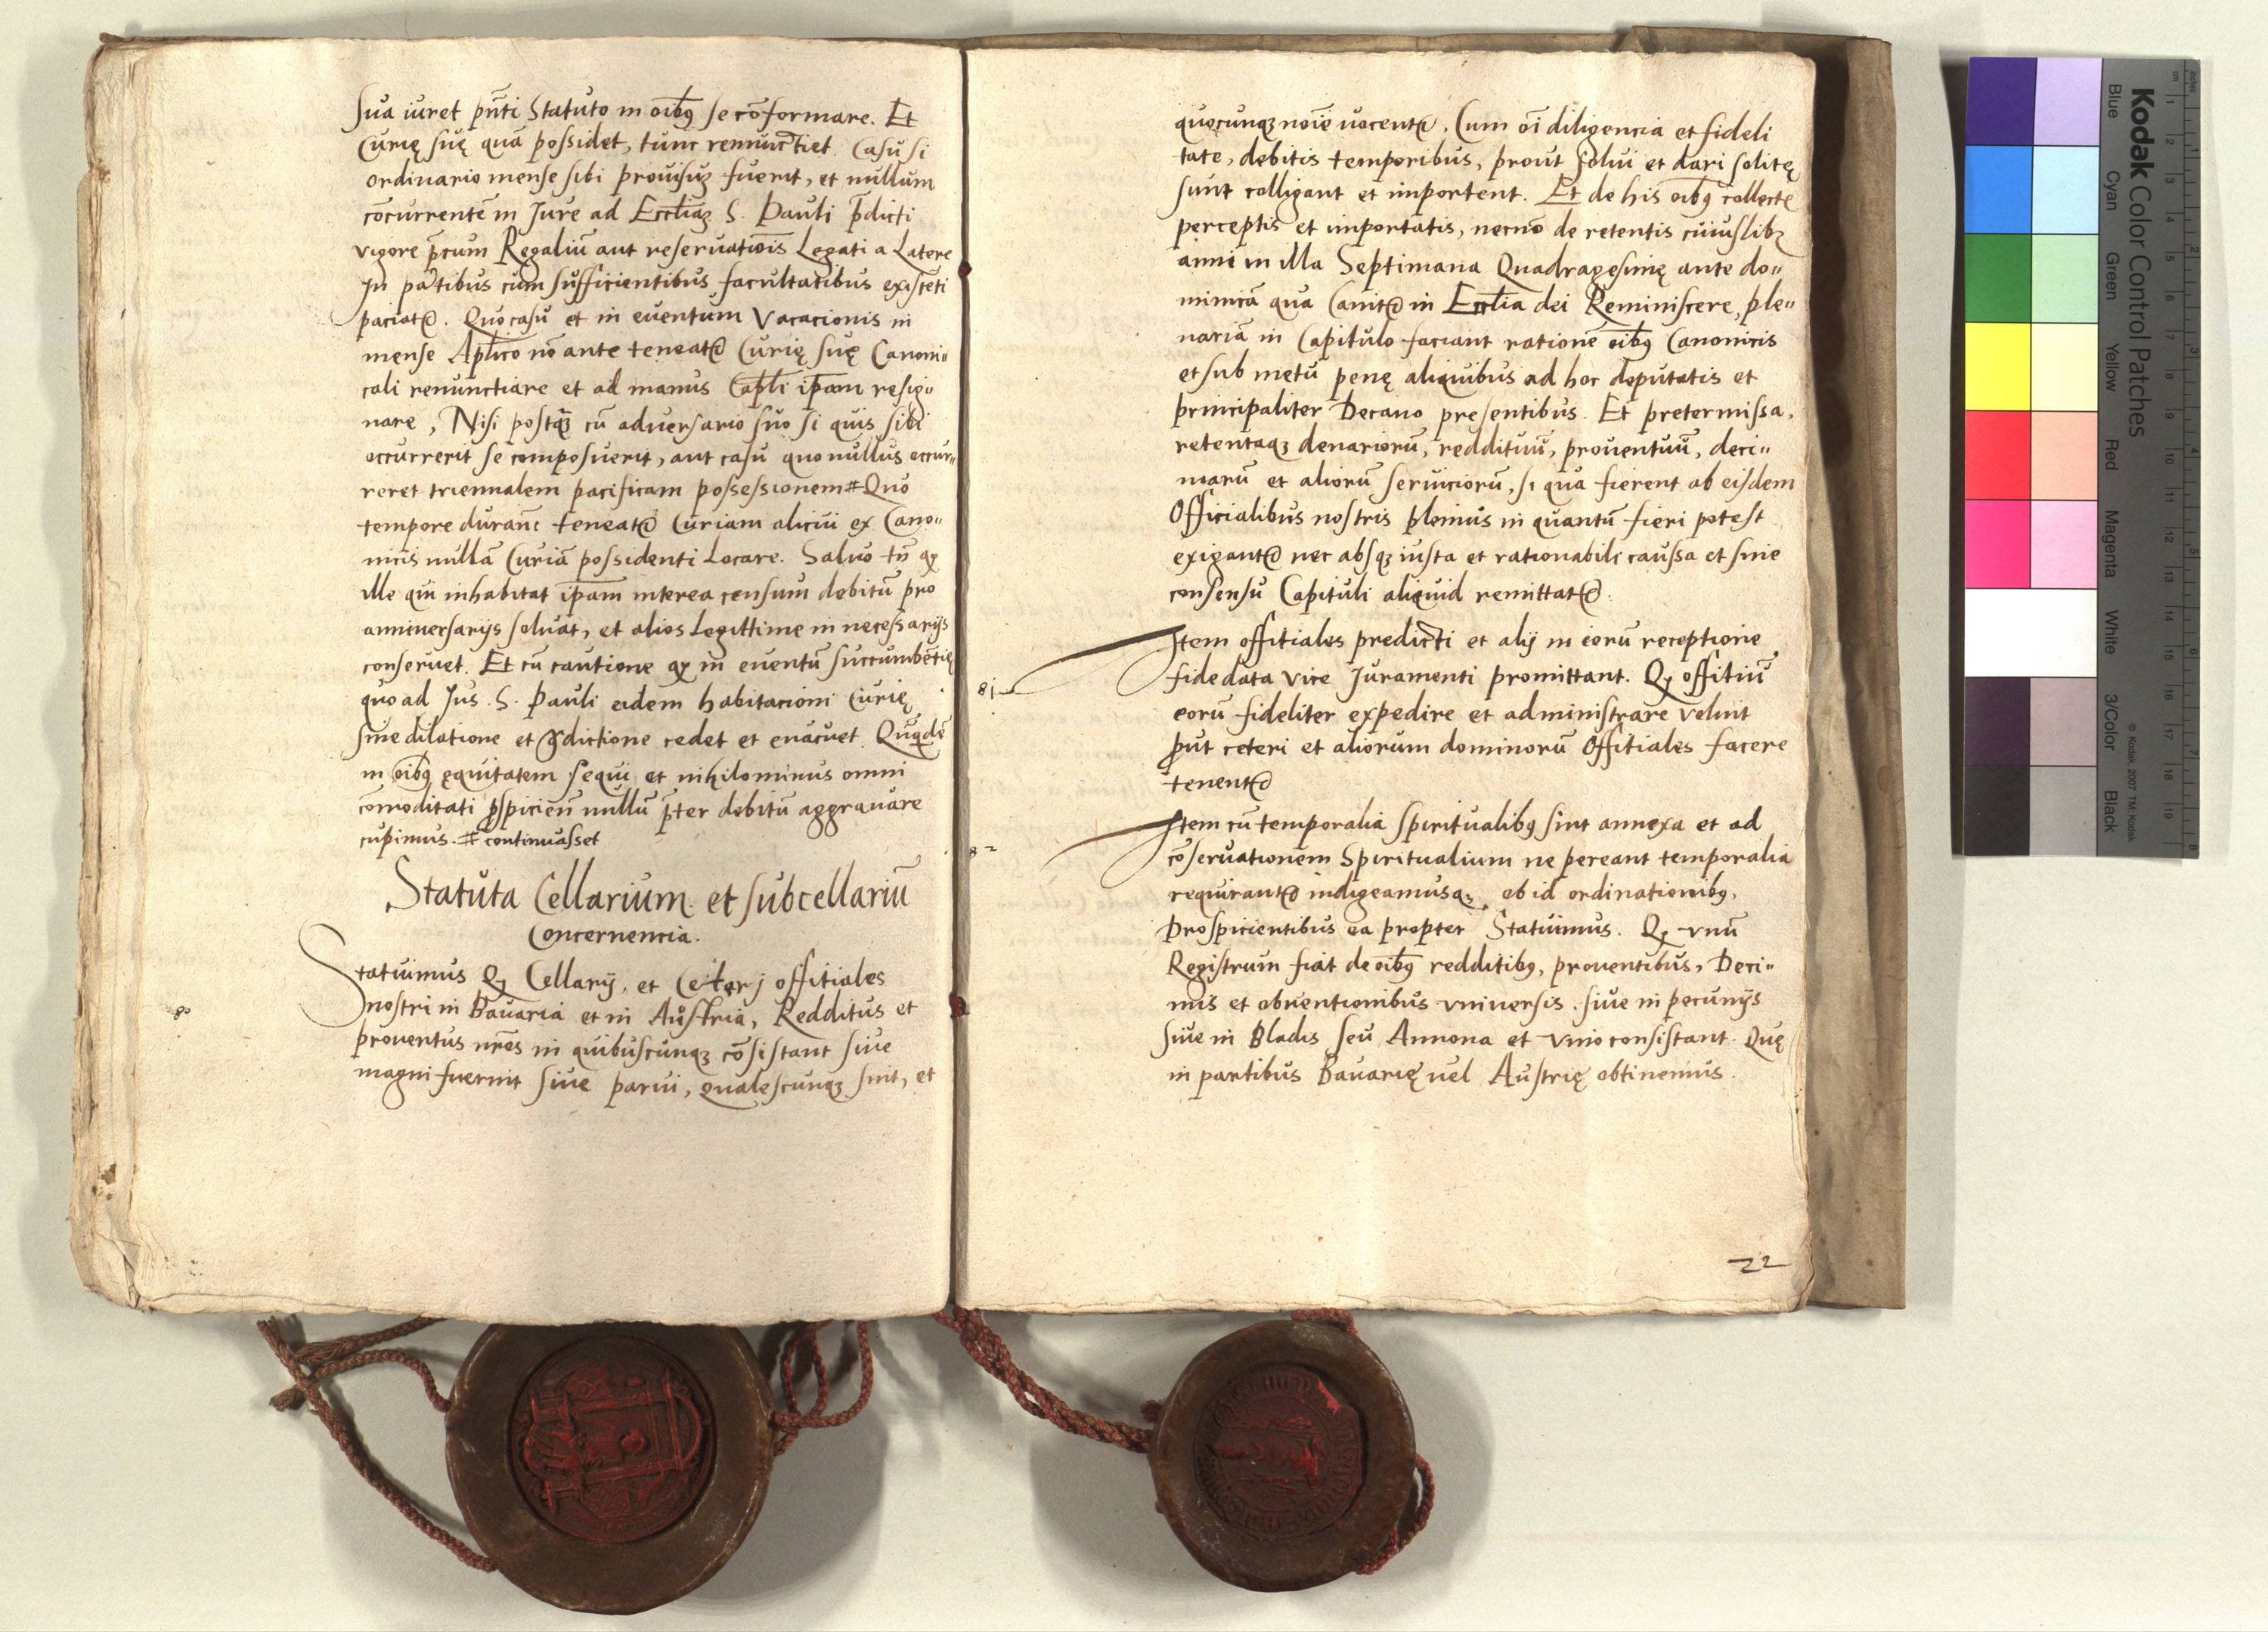 Sua iuret pn̄ti Statuto in oīb9 se cōformare. Et
Curię suę quā possidet, tunc renunctiet. Casu si
ordinario mense sibi prouisuʒ fuerit, et nullum
cōcurrentē in Jure ad Eccl̄iaʒ S. Pauli p̄dicti
vigore p̄cum Regaliū aut reseruatiōis Legati a Latere
In partibus cum sufficientibus facultatibus existēti
paciatr. Quo casu et in euentum Vacacionis in
mense Apl̄ico nō ante teneatr Curię suę Canoni〃
cali renunctiare et ad manus Capl̄i ip̄am resig〃
nare, Nisi postq̄ʒ cū aduersario suo si quis sibi
occurrerit se composuerit, aut casu quo nullus occur〃
reret triennalem pacificam possessionem # Quo
tempore duranī teneatr Curiam alicui ex Cano〃
nicis nullā Curiā possidenti Locare. Saluo tn̄ qꝫ
ille qui inhabitat ip̄am interea censum debitū pro
anniuersarijs soluat, et alios Legittime in necessarijs
conseruet. Et cū cautione qꝫ in euentū succumbētię
quo ad Jus S. Pauli eidem habitacioni Curię
sine dilatione et 9̄dictione cedet et euacuet. Quq̄dē
in oīb9 ęquitatem sequi et nihilominus omni
cōmoditati ꝓspicien̄ nullū p̄ter debitū aggrauare
cupimus. # continuasset
Statuta Cellarium et subcellariū
Concernencia.
80
Statuimus Qꝫ Cellarij, et Ceterj offitiales
nostri in Bauaria et in Austria, Redditus et
prouentus nr̄os in quibuscunqꝫ cōsistant siue
magni fuerint siue parui, qualescunqꝫ sint, et
quocunqꝫ noīe uocentr, Cum oī diligencia et fideli
tate, debitis temporibus, prout solui et dari solitę
sunt colligant et importent. Et de his oīb9 collectę
perceptis et importatis, necnō de retentis cuiuslibꝫ
anni in illa Septimana Quadragesimę ante do〃
minicā qua Canitr in Eccl̄ia dei Reminiscere, ple〃
nariā in Capitulo faciant rationē oīb9 Canonicis
et sub metū penę aliquibus ad hoc deputatis et
principaliter Decano presentibus. Et pretermissa,
retentaqꝫ denariorū, reddituū, prouentuū, deci〃
marū et aliorū seruiciorū, si qua fierent ab eisdem
Officialibus nostris plenius in quantū fieri potest
exigantr nec absqꝫ iusta et rationabili caussa et sine
consensu Capituli aliquid remittatr.
81
Item offitiales predicti et alij in eorū receptione
fide data vice Juramenti promittant. Qꝫ offitiū
eorū fideliter expedire et administrare velint
ꝓut ceteri et aliorum dominorū Offitiales facere
tenentr
82
Item cū temporalia spiritualib9 sint annexa et ad
cōseruationem Spiritualium ne pereant temporalia
requirantr indigeamusqꝫ, ob id ordinationib9,
Prospicientibus ea propter Statuimus. Qꝫ vnū
Registrum fiat de oīb9 redditib9, prouentibus, Deci〃
mis et obuentionibus vniuersis. siue in pecunijs
siue in Bladis seu Annona et vino consistant. Quę
in partibus Bauarię uel Austrię obtinemus.
22
Kodak Color Control Patches
Blue Cyan Green Yellow Red Magenta White 3/Color Black
© Kodak, 2007 TM: Kodak